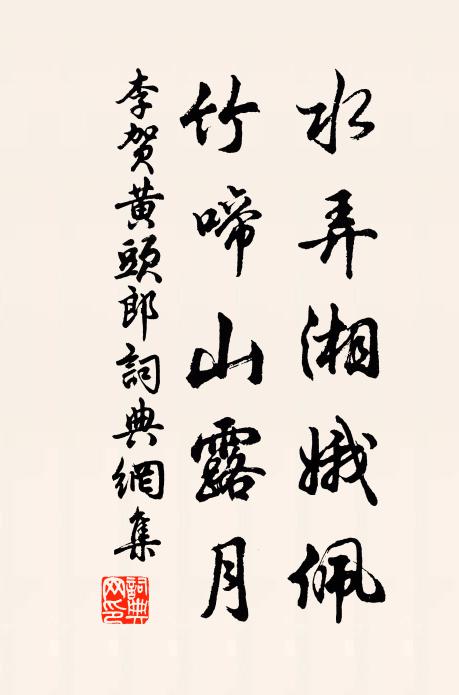 水弄湘娥佩
竹啼山露月
李贺黄頭郎詞典網集
詞典網印